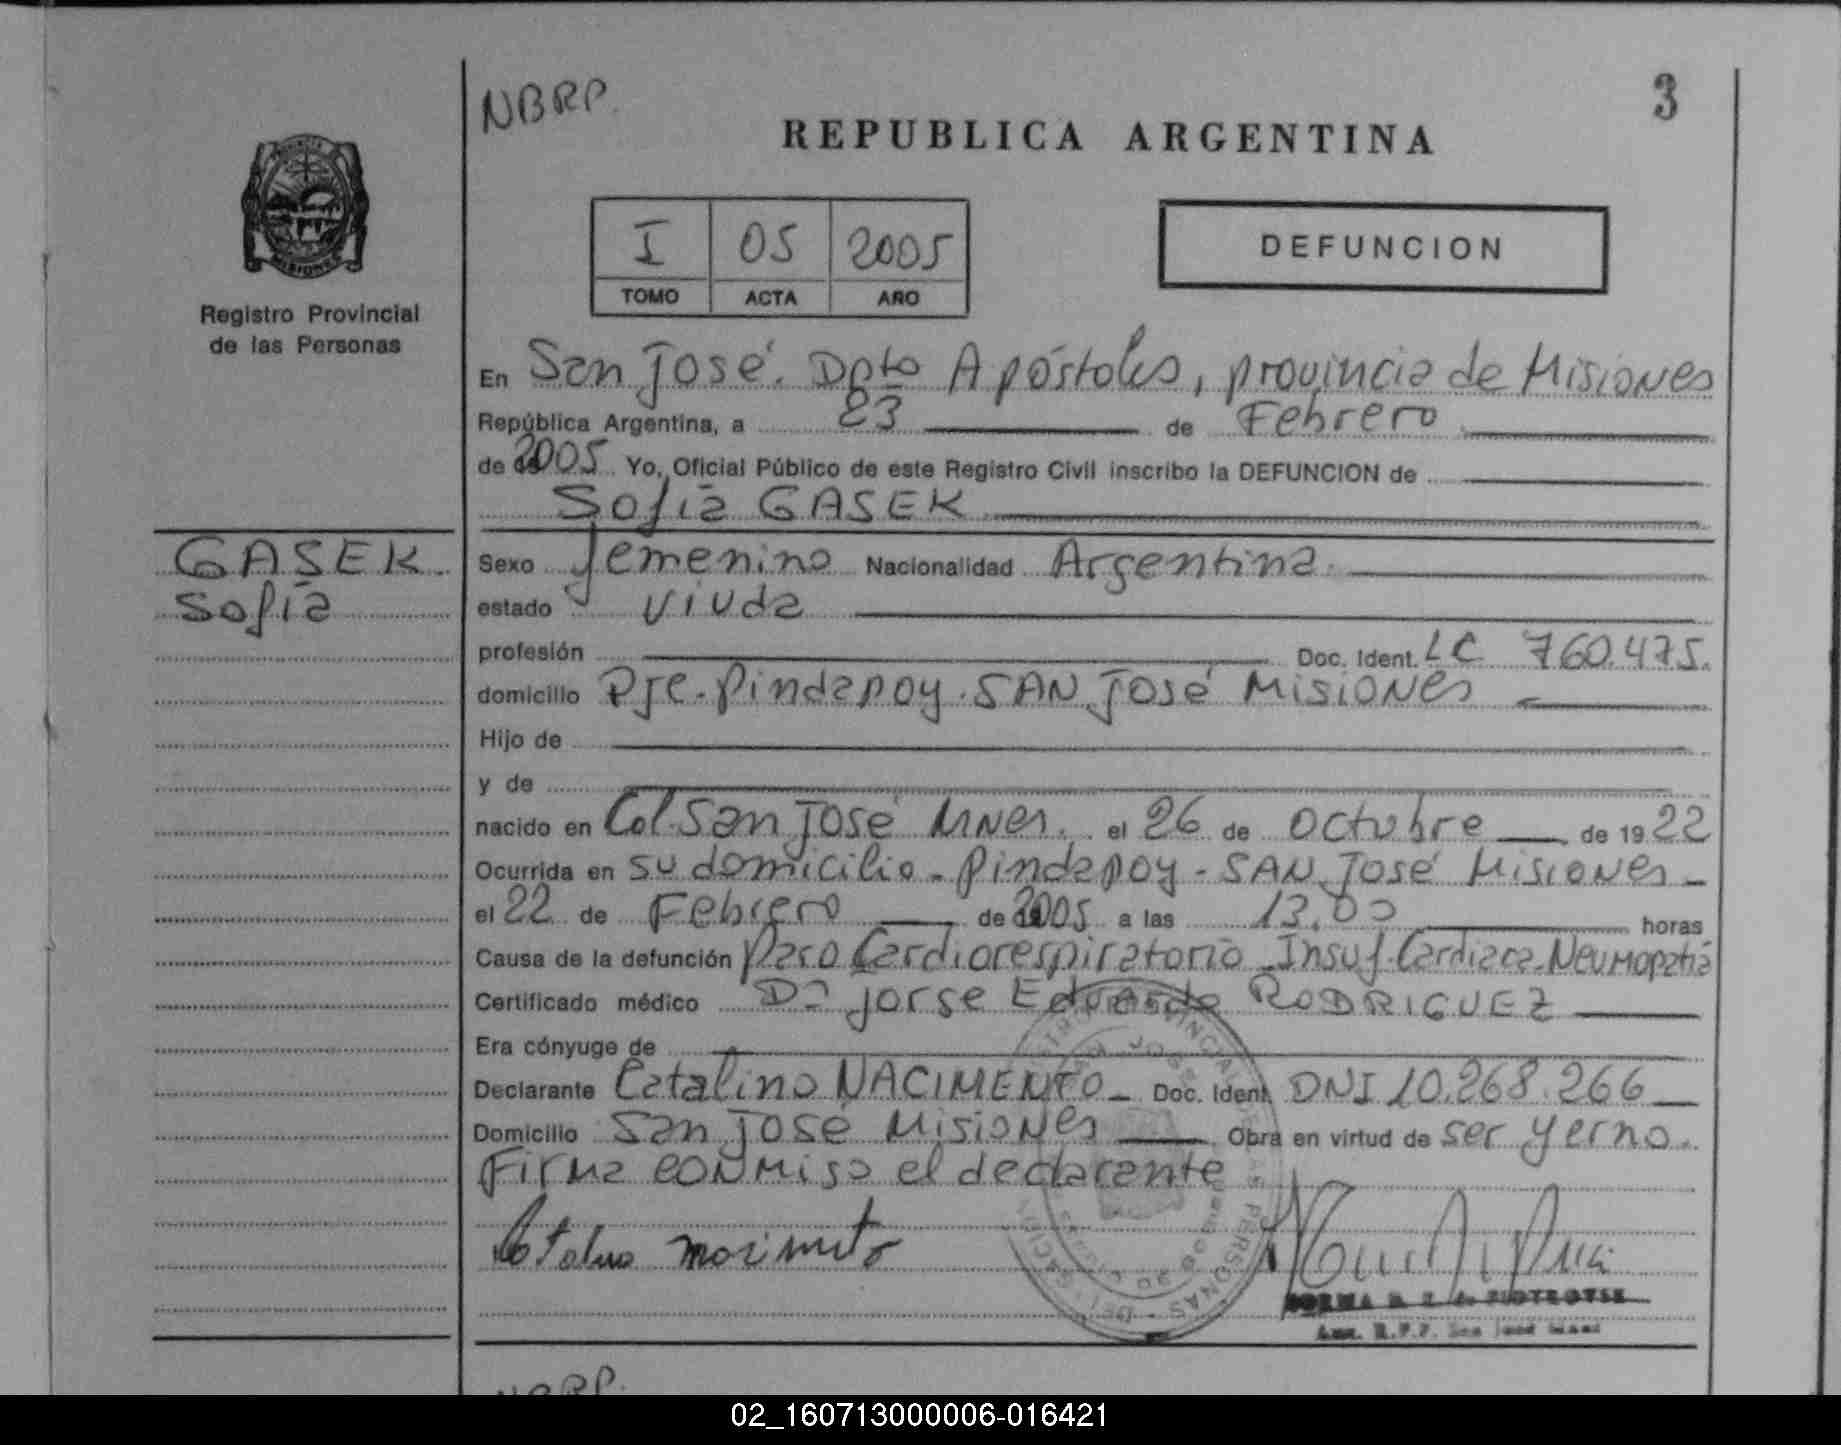 NBRP.
3
REPUBLICA ARGENTINA
I 05 2005
TOMO ACTA AÑO
DEFUNCION
MISIONES
Registro Provincial
de las Personas
En San José. Dpto Apóstoles, provincia de Misiones
República Argentina, a 23 de Febrero
de 2005 Yo, Oficial Público de este Registro Civil inscribo la DEFUNCION de
Sofia GASEK
GASEK
Sofia
Sexo femenino Nacionalidad Argentina.
estado viuda
profesión Doc. Ident. LC 760.475.
domicilio Pje. Pindapoy. SAN José Misiones
Hijo de
y de
nacido en Col. San José Mnes. el 26 de octubre de 1922
Ocurrida en su domicilio - Pindapoy - SAN José Misiones
el 22 de Febrero de 2005 a las 13.00 horas
Causa de la defunción Paro Cardiorespiratorio - Insuf. Cardiaca - Neumopatia
Certificado médico Dr Jorge Eduardo RODRIGUEZ
Era cónyuge de
Declarante Catalino NACIMENTO - Doc. Ident. DNI 10.268.266
Domicilio San José Misiones Obra en virtud de ser yerno.
Firma conmigo el declarante
NBRP.
02_160713000006-016421